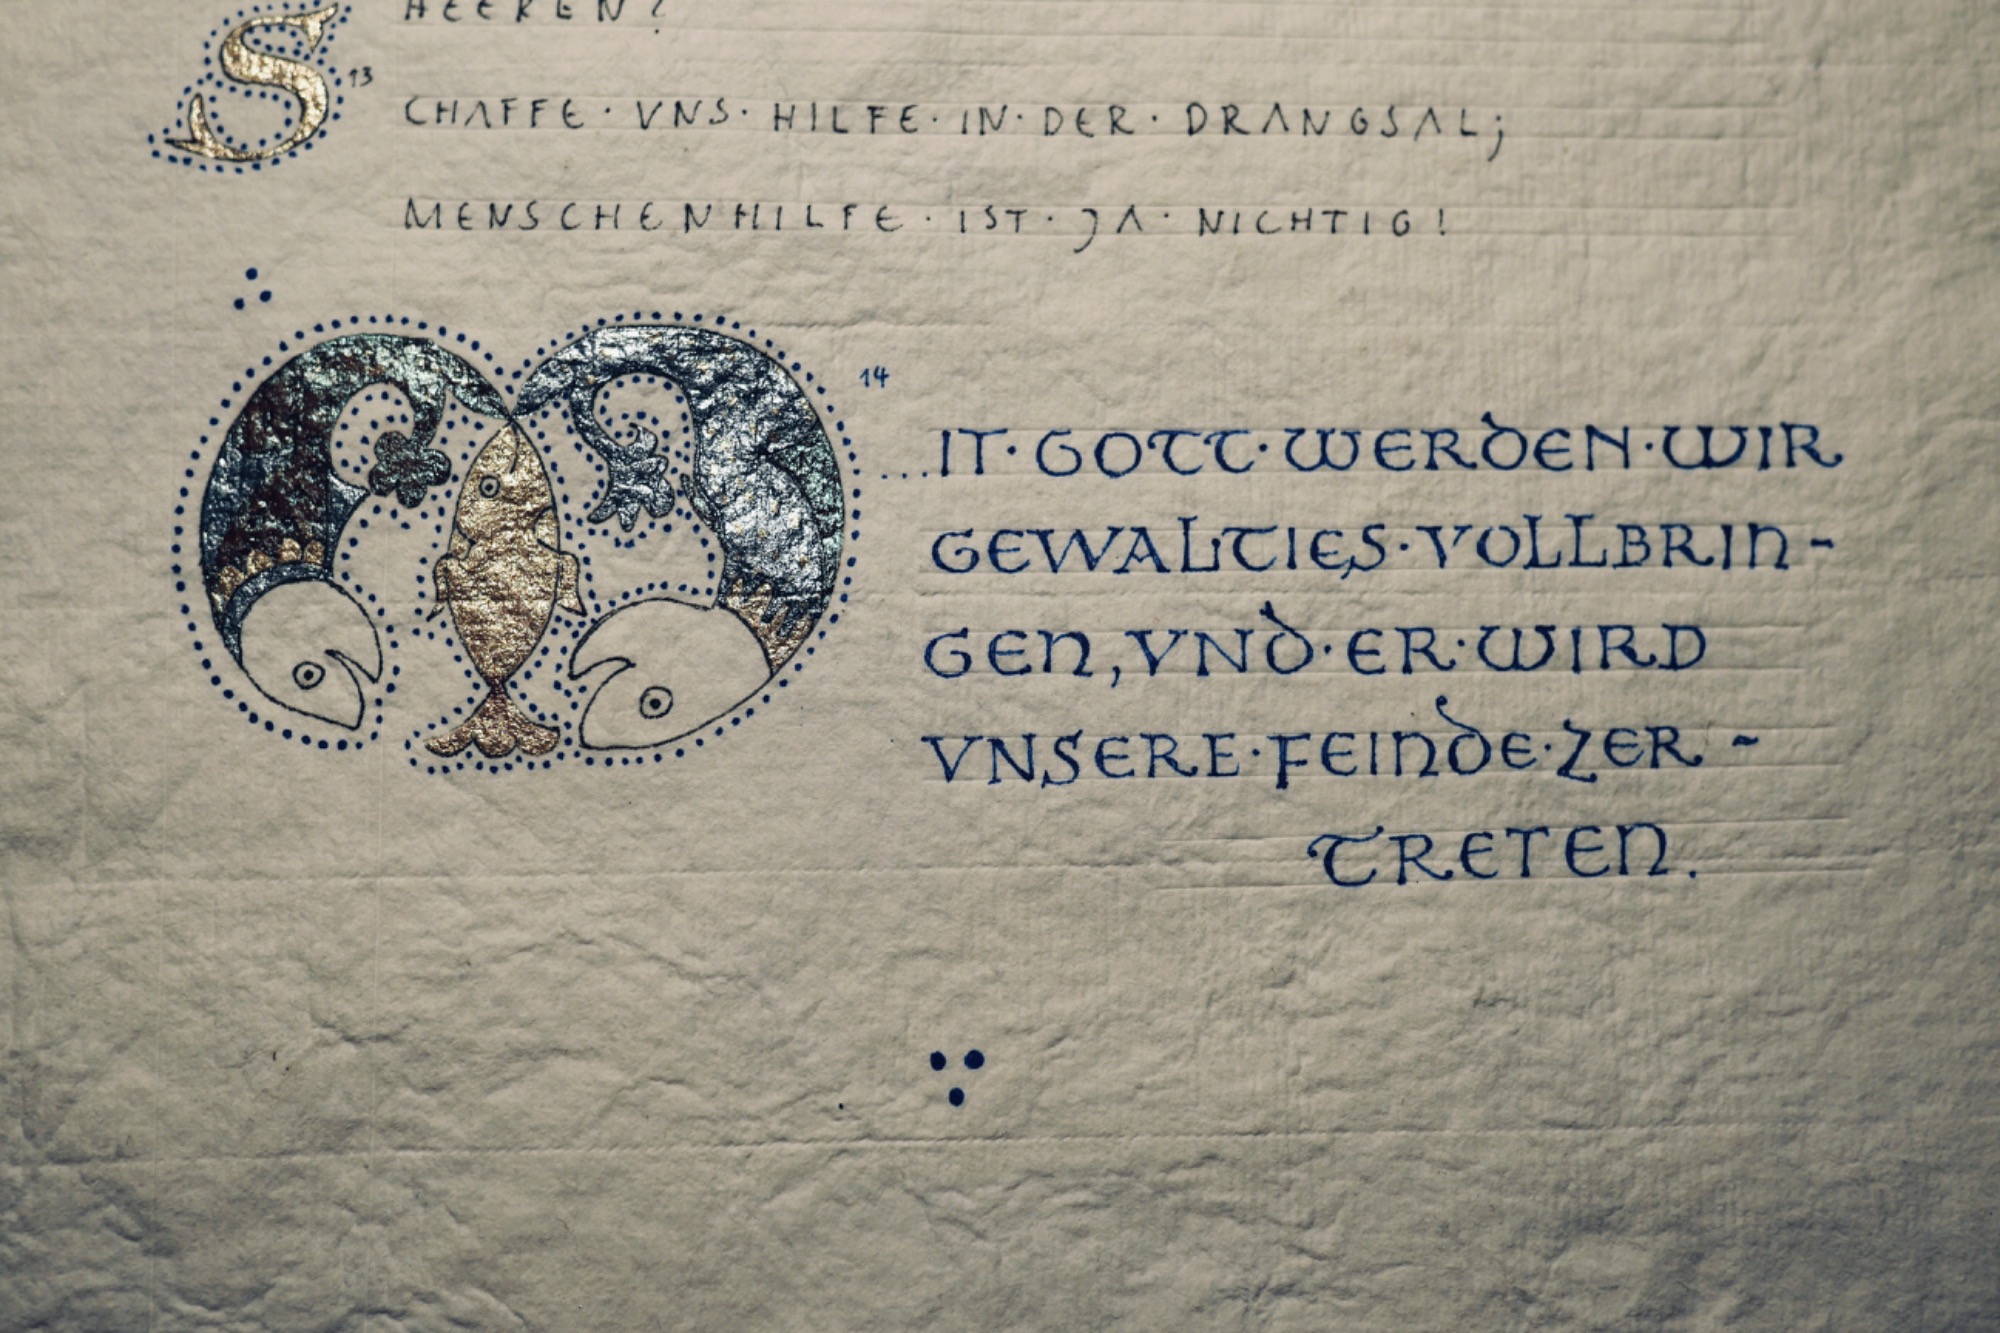 HEEREN?
S 13 CHAFFE · VNS · HILFE · IN · DER · DRANGSAL;
MENSCHENHILFE · IST · JA · NICHTIG!
M 14 ...IT · GOTT · WERDEN · WIR
GEWALTIES · VOLLBRIN-
GEN, VND · ER · WIRD
VNSERE · FEINDE · ZER-
TRETEN.